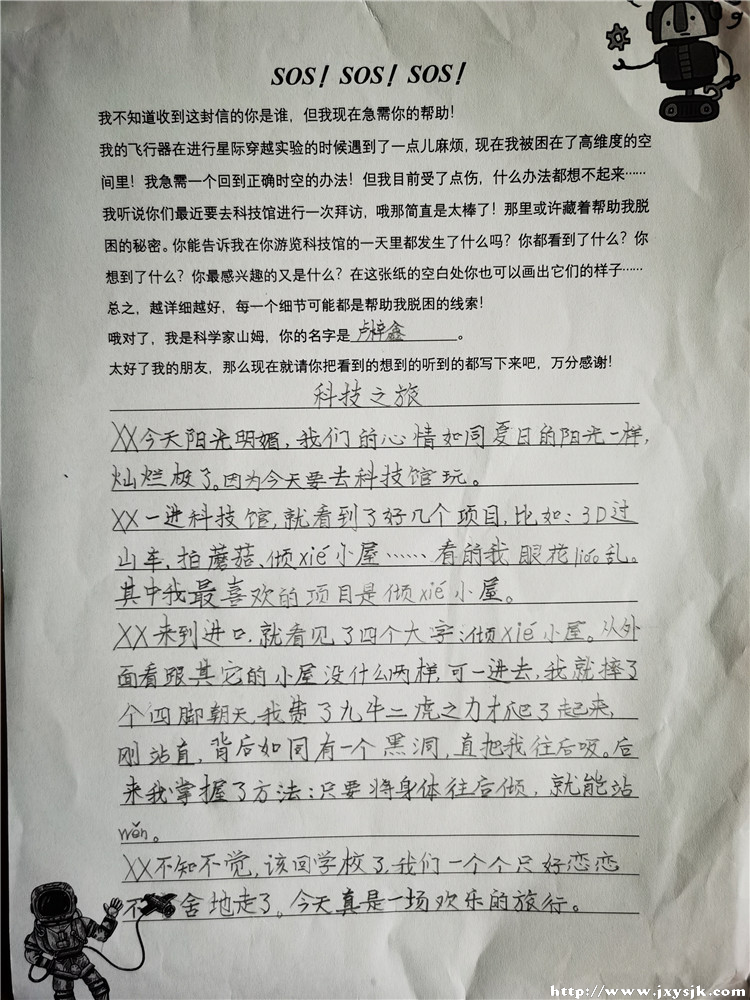 SOS! SOS! SOS!
我不知道收到这封信的你是谁，但我现在急需你的帮助！
我的飞行器在进行星际穿越实验的时候遇到了一点儿麻烦，现在我被困在了高维度的空
间里！我急需一个回到正确时空的办法！但我目前受了点伤，什么办法都想不起来……
我听说你们最近要去科技馆进行一次拜访，哦那简直是太棒了！那里或许藏着帮助我脱
困的秘密。你能告诉我在你游览科技馆的一天里都发生了什么吗？你都看到了什么？你
想到了什么？你最感兴趣的又是什么？在这张纸的空白处你也可以画出它们的样子……
总之，越详细越好，每一个细节可能都是帮助我脱困的线索！
哦对了，我是科学家山姆，你的名字是卢梓鑫。
太好了我的朋友，那么现在就请你把看到的想到的听到的都写下来吧，万分感谢！
科技之旅
XX今天阳光明媚，我们的心情如同夏日的阳光一样，
灿烂极了。因为今天要去科技馆玩。
XX一进科技馆，就看到了好几个项目，比如：3D过
山车、拍蘑菇、倾xié小屋……看的我眼花liáo乱。
其中我最喜欢的项目是倾xié小屋。
XX来到进口，就看见了四个大字：倾xié小屋。从外
面看跟其它的小屋没什么两样，可一进去，我就摔了
个四脚朝天，我费了九牛二虎之力才爬了起来，
刚站直，背后如同有一个黑洞，直把我往后吸。后
来我掌握了方法：只要将身体往后倾，就能站
wěn。
XX不知不觉，该回学校了，我们一个个只好恋恋
不舍地走了。今天真是一场欢乐的旅行。
http://www.jxysjk.com